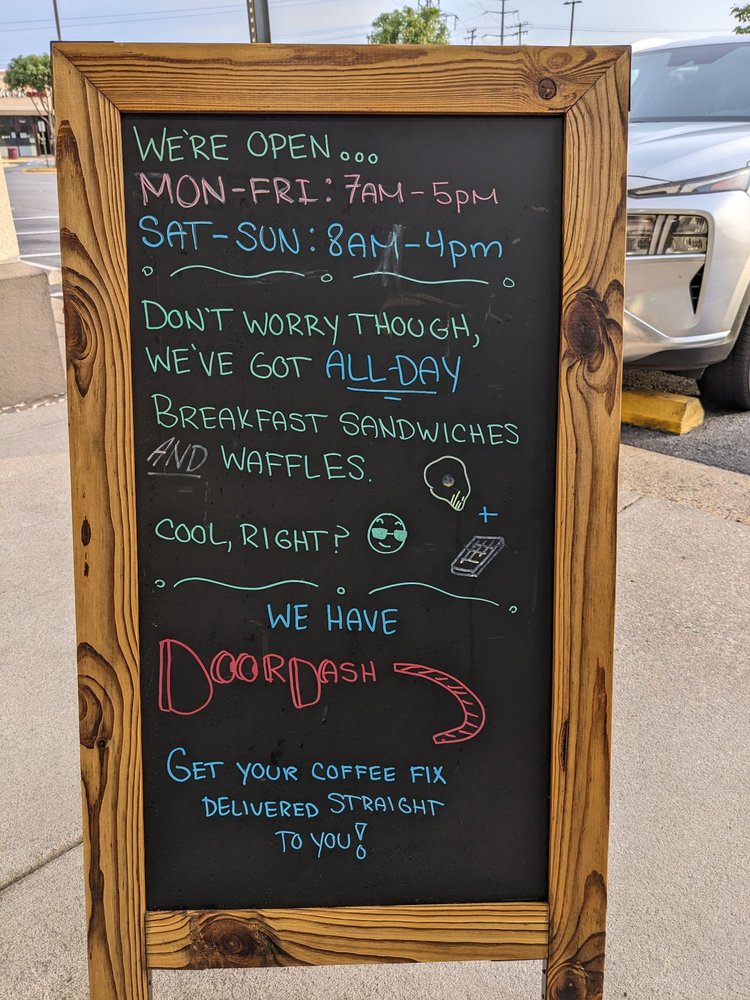 WE'RE OPEN...
MON-FRI: 7AM-5PM
SAT-SUN: 8AM-4PM
DON'T WORRY THOUGH,
WE'VE GOT ALL-DAY
BREAKFAST SANDWICHES
AND WAFFLES.
+
COOL, RIGHT?
WE HAVE
DOORDASH
GET YOUR COFFEE FIX
DELIVERED STRAIGHT
TO YOU!